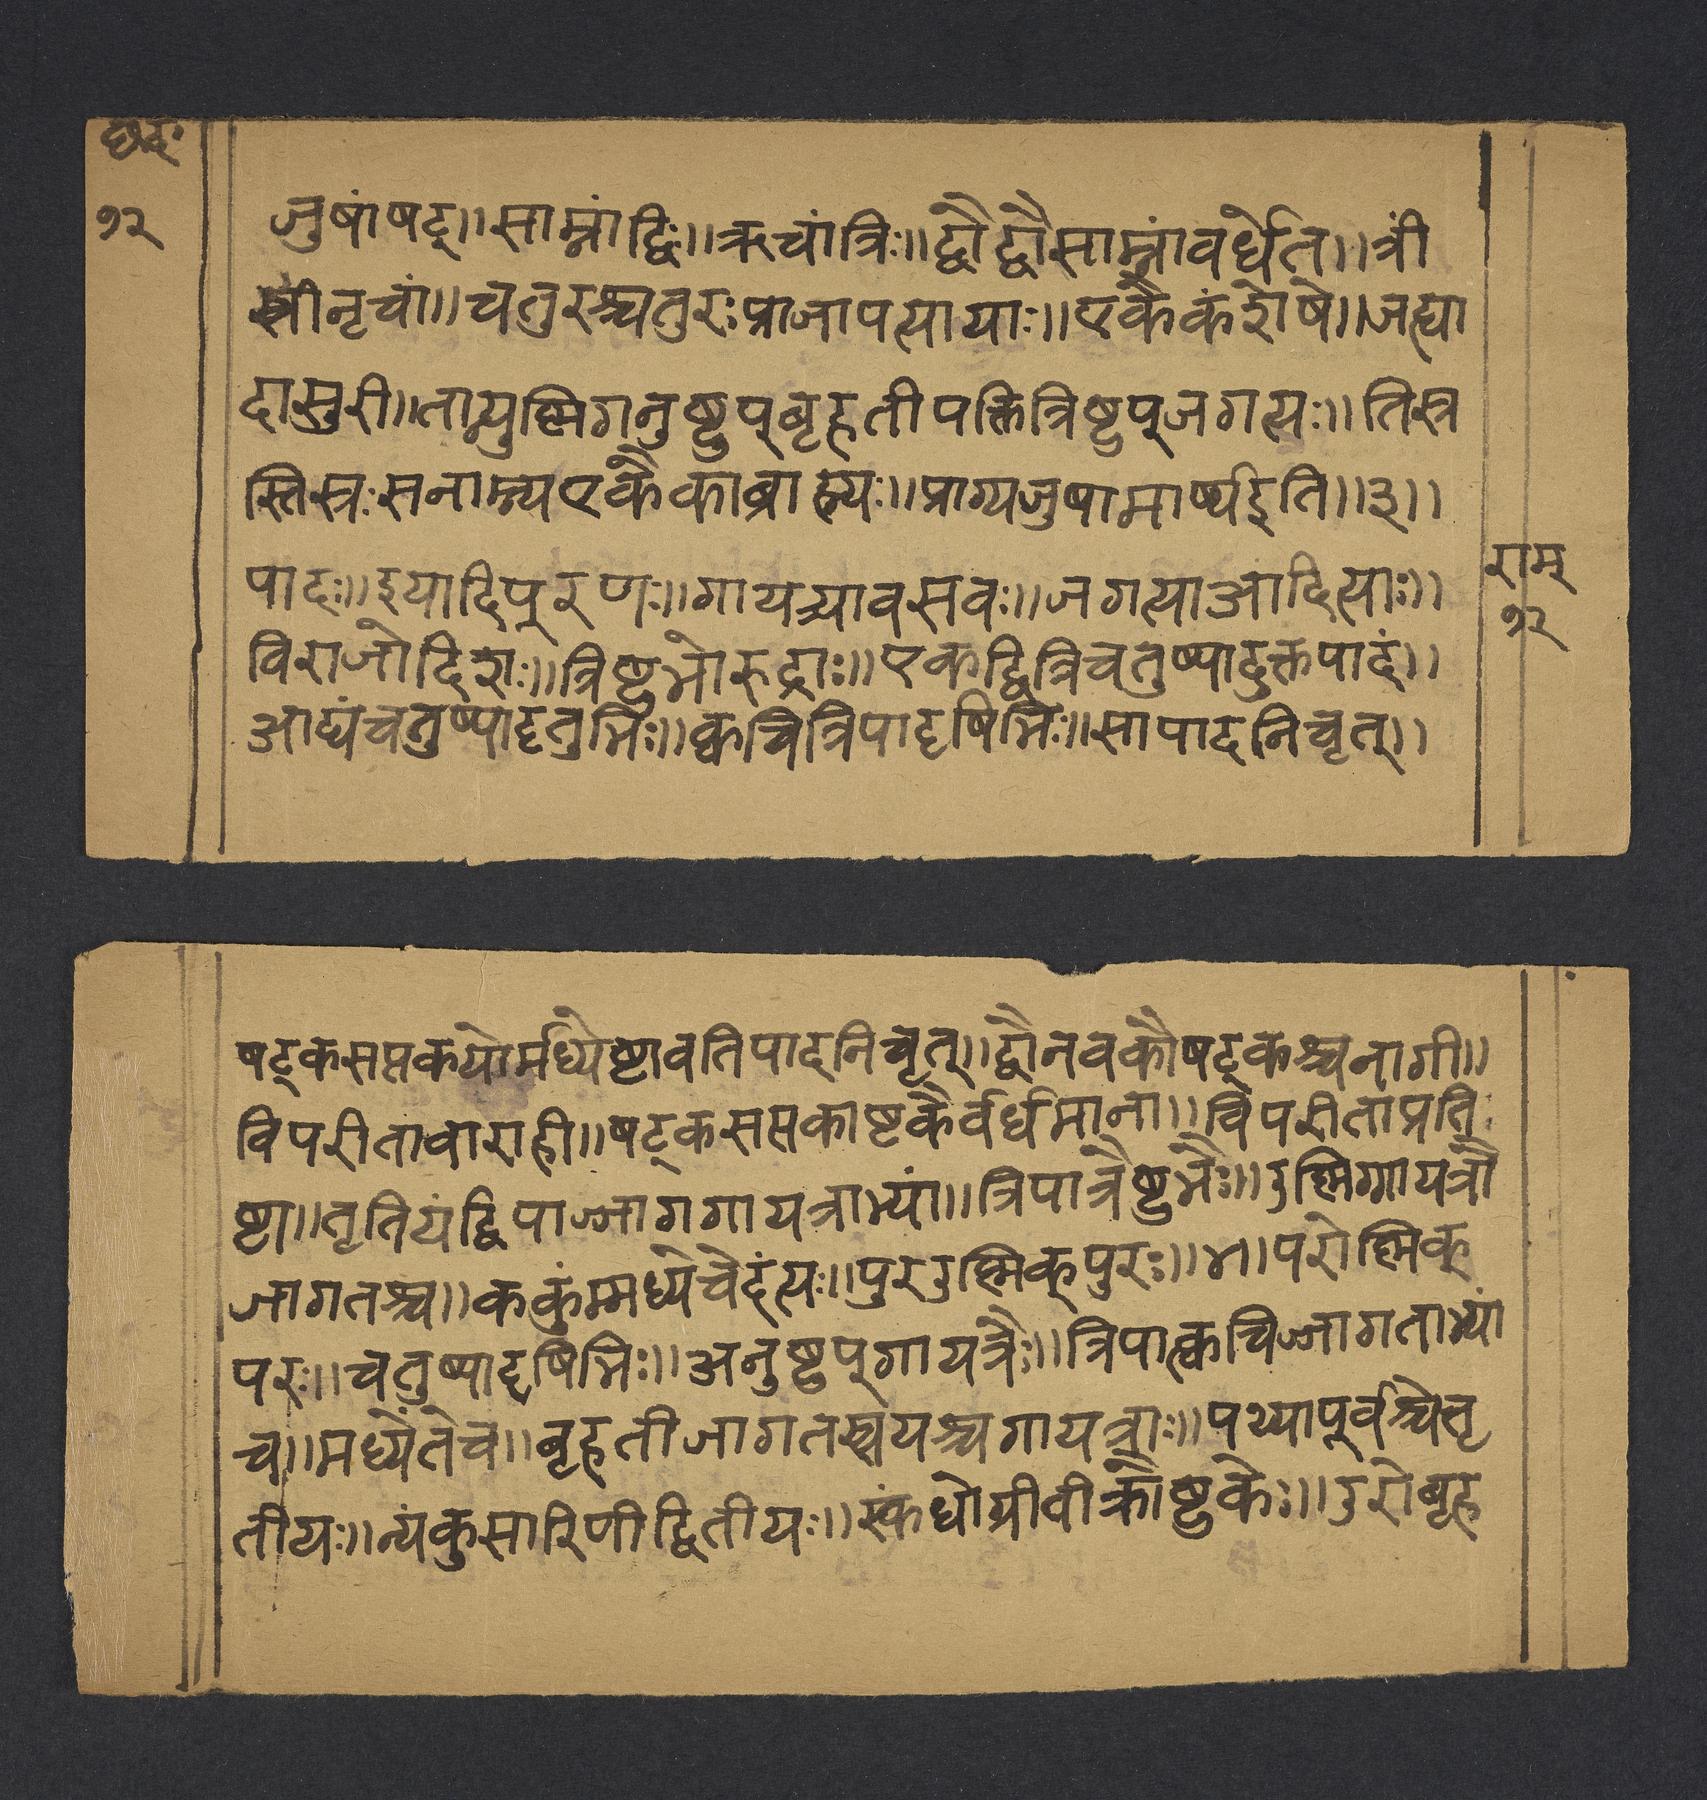 छंदः
१२
जुषांषट्॥साम्नांद्विः॥ऋचांत्रिः॥द्वौद्वौसाम्नांवर्धेत॥त्रीं
स्त्रीनृचां॥चतुरश्चतुरःप्राजापत्यायाः॥एकैकंशेषे॥जह्या
दासुरी॥तान्युष्णिगनुष्टुप्बृहतीपक्तित्रिष्टुप्जगत्यः॥तिस्त्र
स्तिस्त्रःसनाम्न्यएकैकाब्राह्म्यः॥प्राग्यजुषामार्ष्यइति॥३॥
राम
१२
पादः॥इयादिपूरणः॥गायत्र्यावसवः॥जगत्याआदित्याः॥
विराजोदिशः॥त्रिष्टुभोरुद्राः॥एकद्वित्रिचतुष्पादुक्तपादं॥
आद्यंचतुष्पादृतुभिः॥क्वचित्रिपादृषिभिः॥सापादनिचृत्॥
षट्कसप्तकयोर्मध्येष्टावतिपादनिचृत्॥द्वौनवकौषट्कश्चनागी॥
विपरीतावाराही॥षट्कसप्तकाष्टकैर्वर्धमाना॥विपरीताप्रति
ष्टा॥तृतियंद्विपाज्जागगायत्राभ्यां॥त्रिपात्रैष्टुभैः॥उष्णिग्गायत्रौ
जागतश्च॥ककुंम्मध्येचेदंत्यः॥पुरउष्णिक्पुरः॥४॥परोष्णिक्
परः॥चतुष्पादृषिभिः॥अनुष्टुप्गायत्रैः॥त्रिपात्क्वचिज्जागताभ्यां
च॥मध्येंतेच॥बृहतीजागतस्त्रयश्चगायत्राः॥पथ्यापूर्वश्चेतृ
तीयः॥न्यंकुसारिणीद्वितीयः॥स्कंधोग्रीवीक्रौष्टुकेः॥उरोबृह